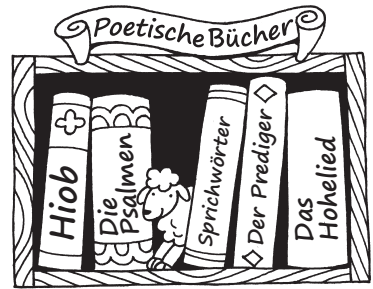 Poetische Bücher
Hiob
Die
Psalmen
Sprichwörter
Der Prediger
Das
Hohelied